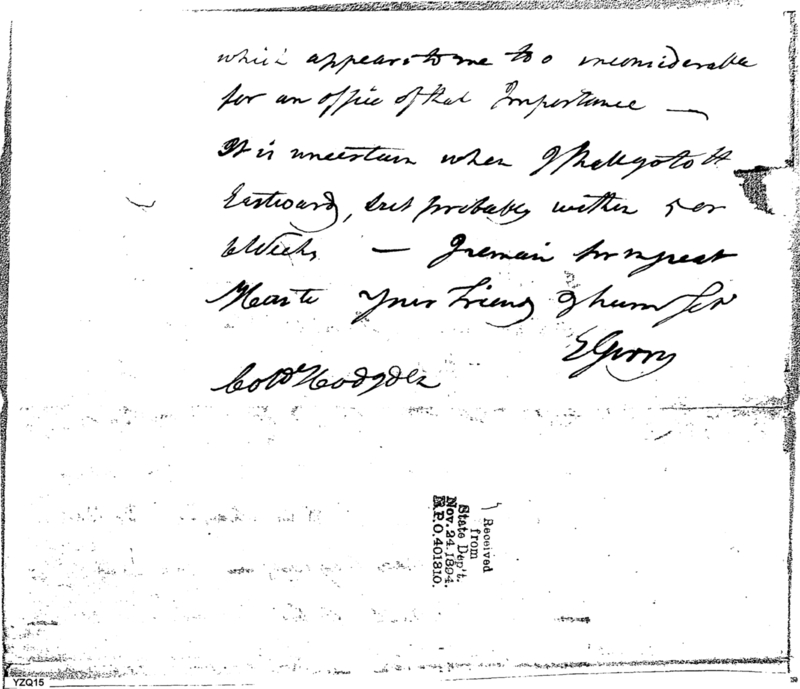 which appears to me too inconsiderable
for an office of that Importance —
It is uncertain when I shall go to the
Eastward, but probably within 5 or
6 Weeks — I remain in great
Haste your Friend & hum Ser
E Gerry
Colo Hodgdon
Received
from
State Dep't.
Nov. 24, 1894.
R.P.O. 401310.
YZQ15